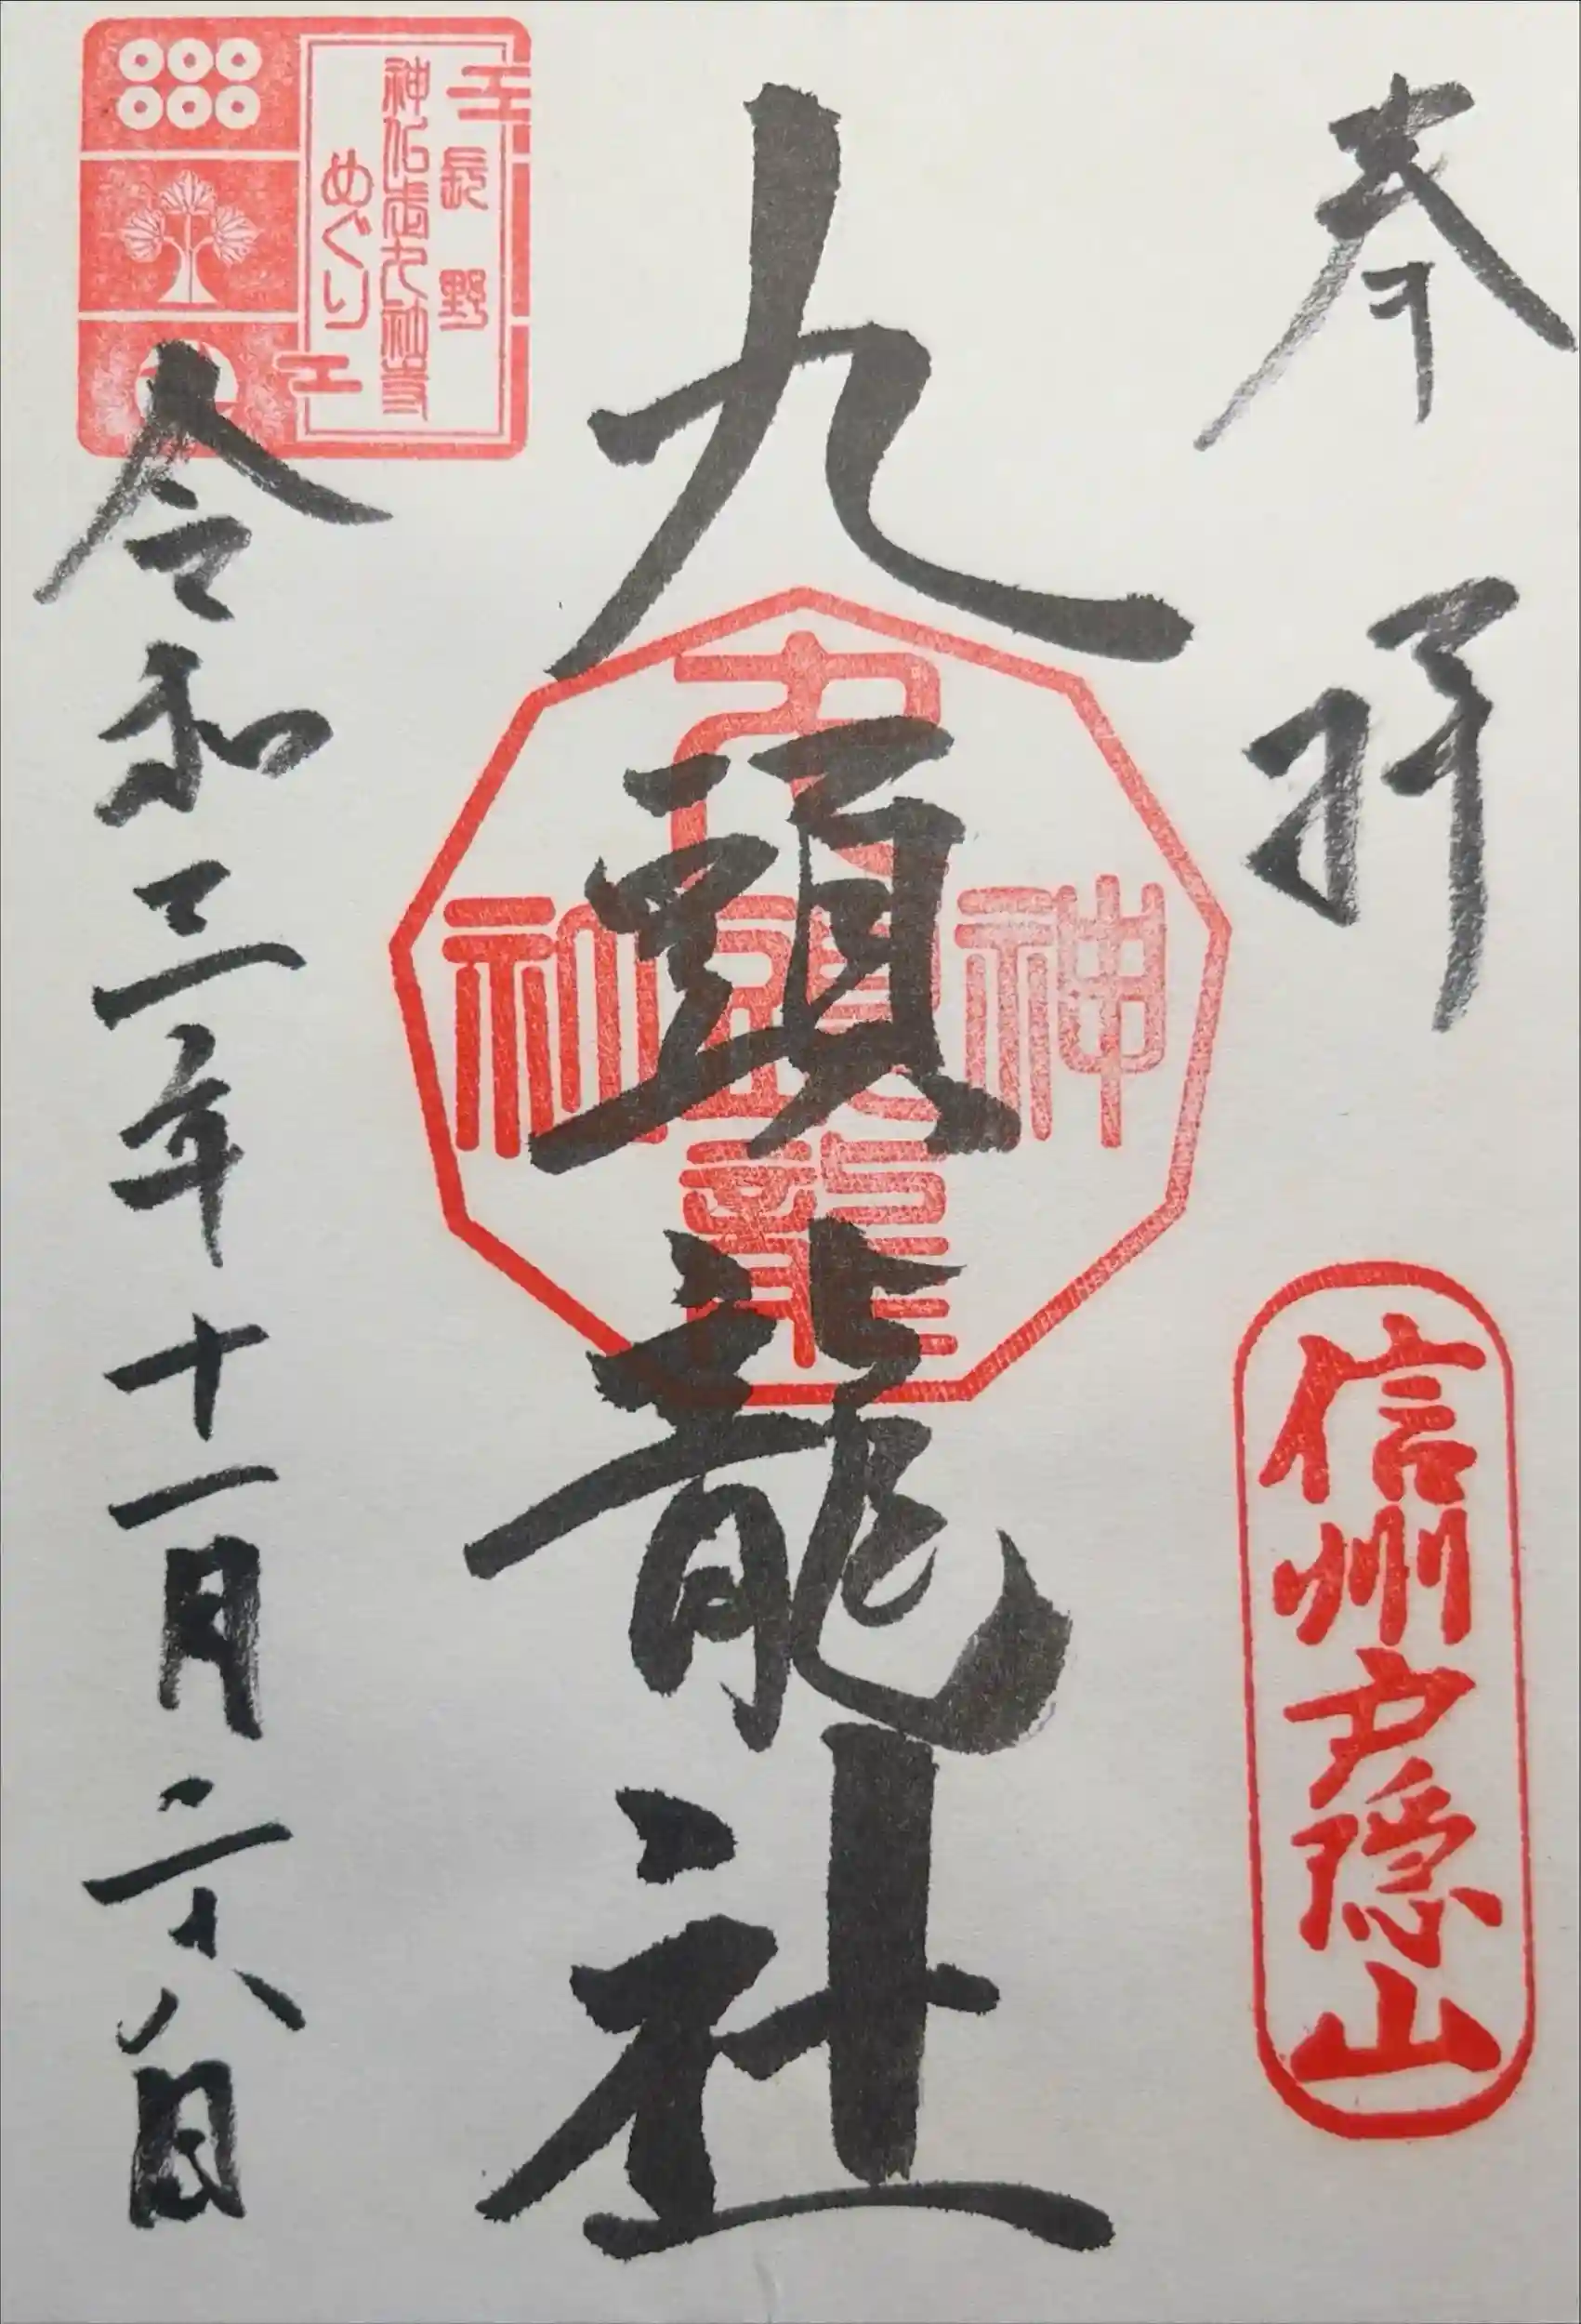 奉拝
信州戸隠山
九頭龍社
九頭龍
神
社
令和三年十一月二十八日
長野
めぐり